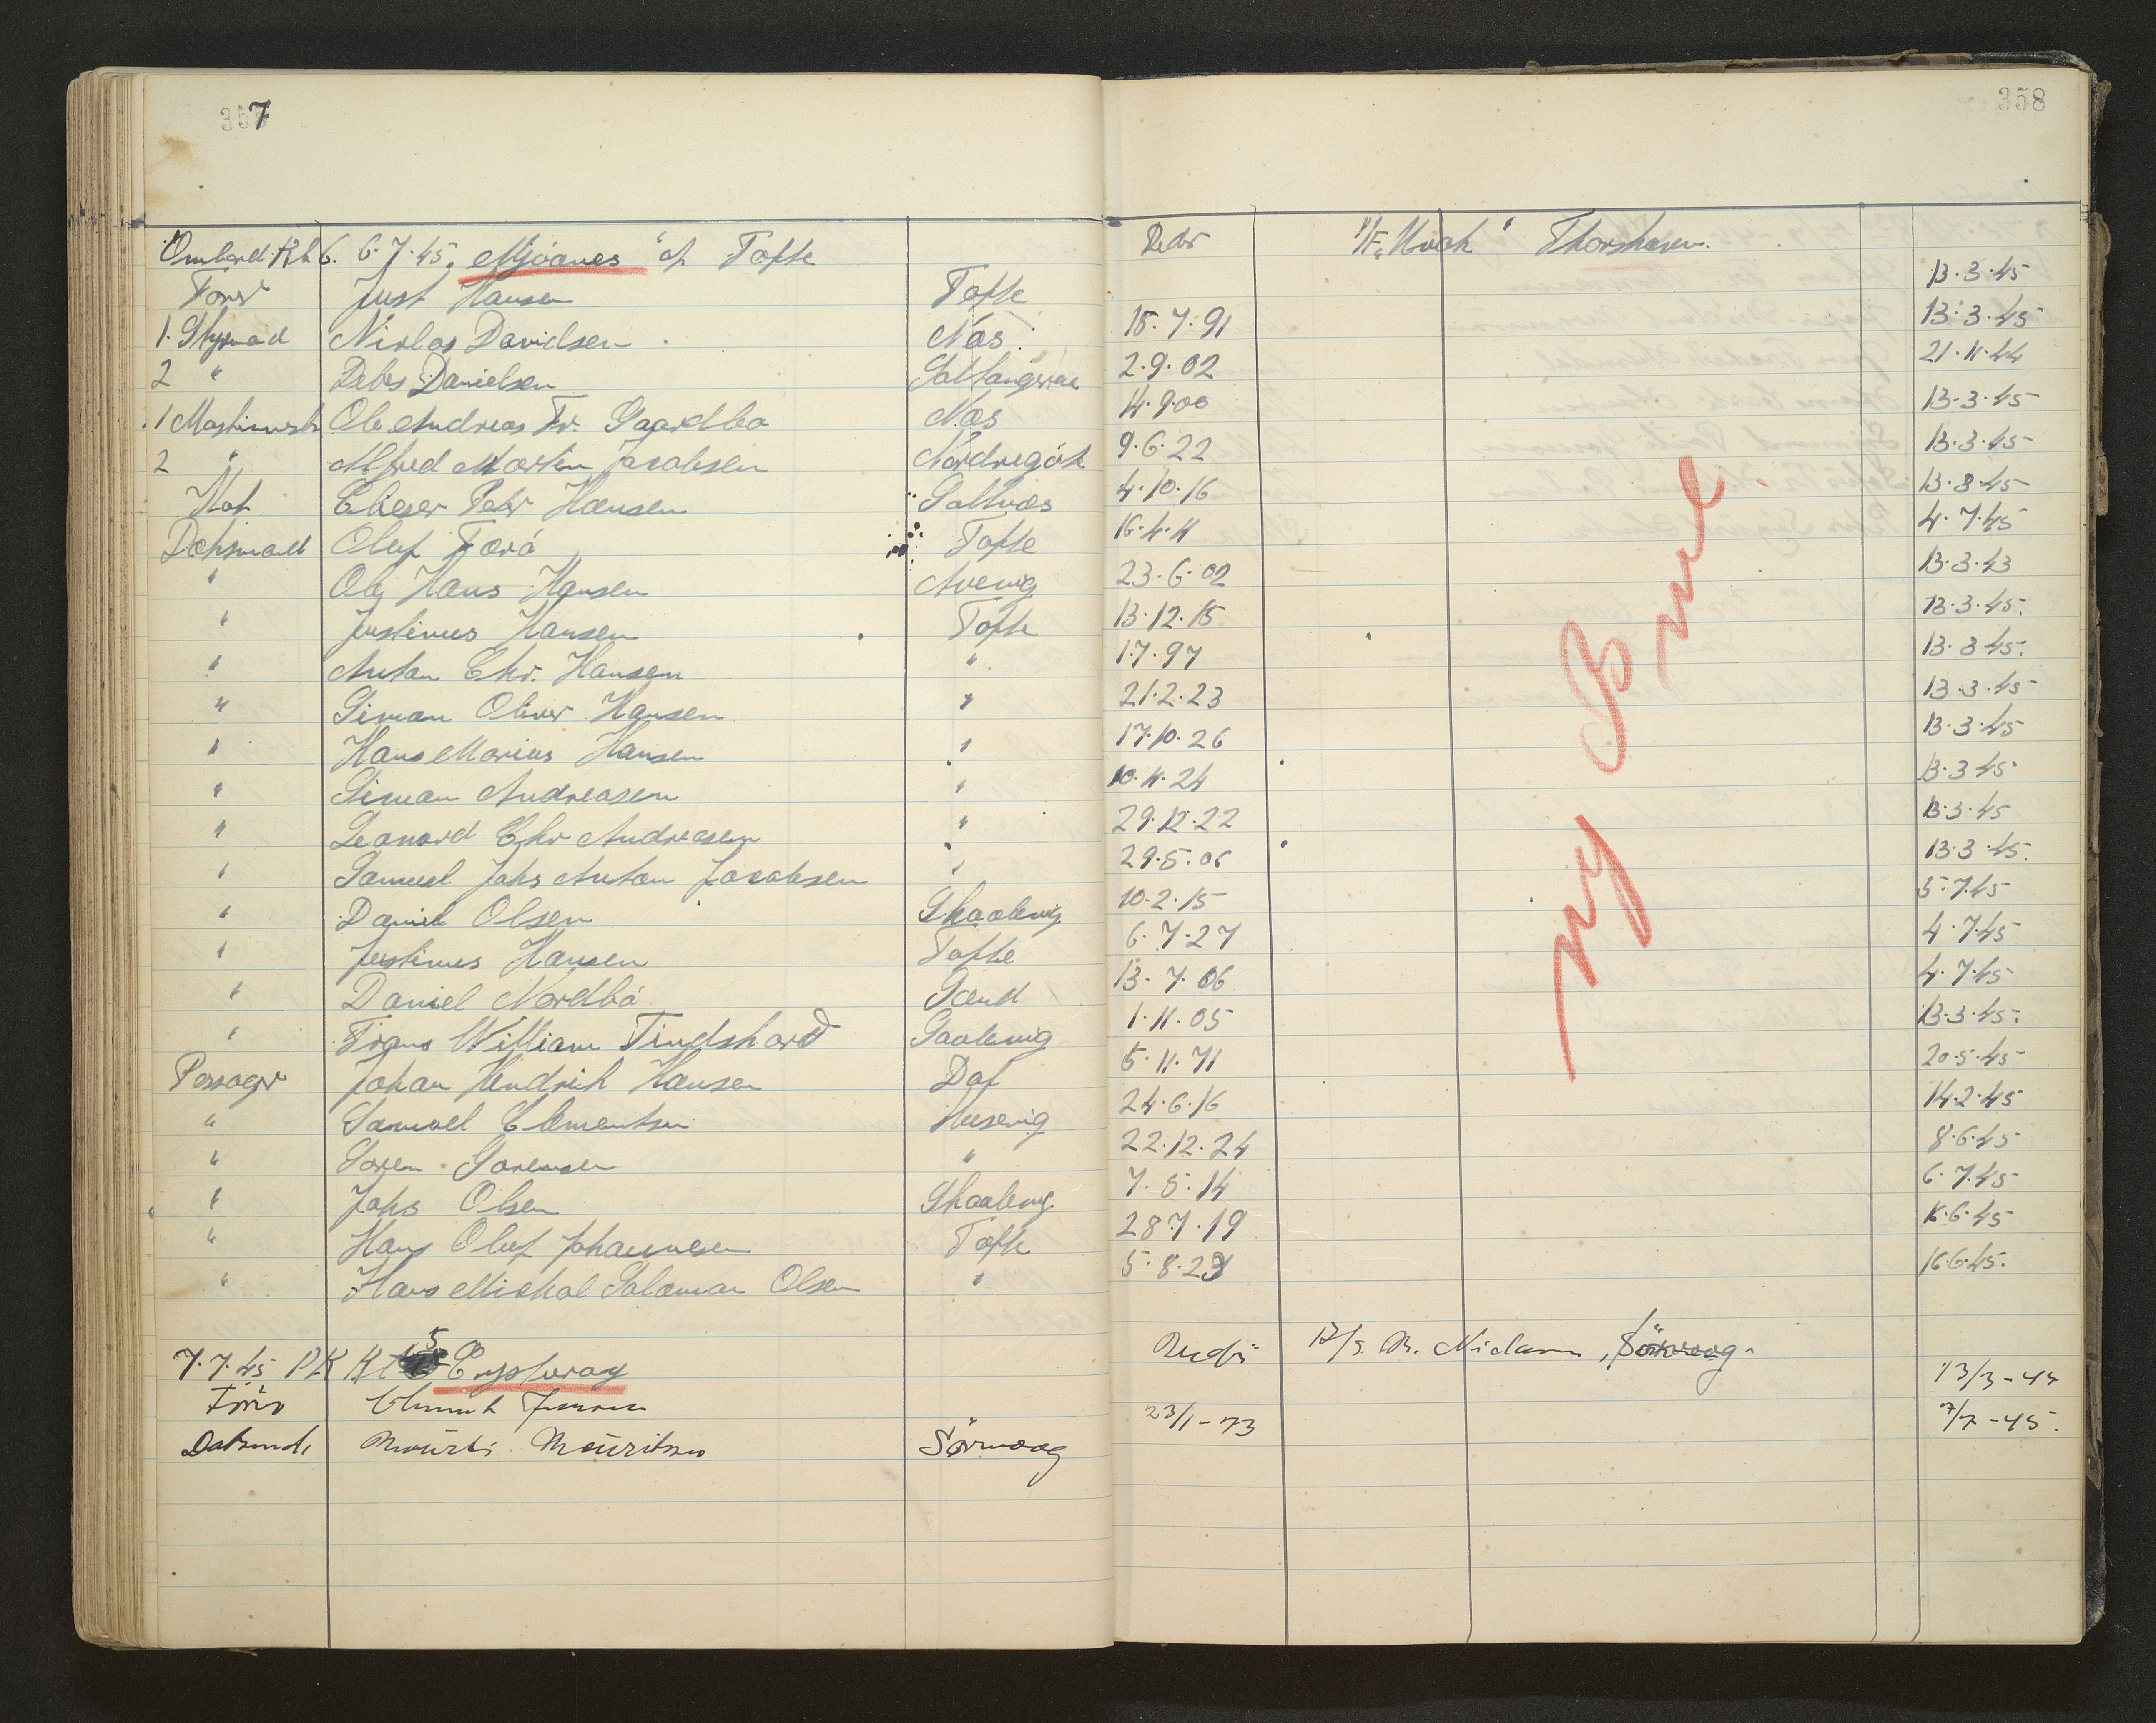 357
358
Ombord Kl 6. 6.7.45. "Mjóanes" af Tofte Reder "F. Kvok" Thorshavn.
Förer Just Hansen Tofte 13.3.45
1. Styrmad Nicolas Davidsen Nas 18.7.91 13.3.45
2 " Debes Danielsen Saltangeraa 2.9.02 21.11.44
1 Maskinmstr Ole Andreas Fr. Gaardbo Nas 14.9.00 13.3.45
2 " Alfred Morten Jacobsen Nordregöte 9.6.22 13.3.45
Kok Elieser Peter Hansen Saltnæs 4.10.16 13.3.45
Dæksmand Oluf Forá Tofte 16.4.11 4.7.45
" Ole Hans Hansen Avevig 23.6.02 13.3.43
" Justinus Hansen Tofte 13.12.15 13.3.45.
" Anton Chr. Hansen " 1.7.97 13.3.45.
" Simon Oliver Hansen " 21.2.23 13.3.45
" Hans Marius Hansen " 17.10.26 13.3.45
" Simon Andreasen " 10.11.24 13.3.45
" Leonard Chr Andreasen " 29.12.22 13.3.45
" Samuel Johs Anton Jacobsen " 29.5.06 13.3.45.
" Daniel Olsen Skaalevig 10.2.15 5.7.45
" Justinus Hansen Tofte 6.7.27 4.7.45
" Daniel Nordbó Sand 13.7.06 4.7.45
" Frans William Tindskard Saalevig 1.11.05 13.3.45.
Passager Johan Hendrik Hansen Dal 5.11.71 20.5.45
" Samuel Clementsen Husevig 24.6.16 14.2.45
" Soren Sorensen " 22.12.24 8.6.45
" Johs Olsen Skaalevig 7.5.14 6.7.45
" Hans Oluf Johannesen Tofte 28.7.19 16.6.45
" Hans Mickal Salamon Olsen " 5.8.23 16.6.45.
ny Bme
7.7.45 PK Kl 5 Eysturoy Rederi N. Niclasen, Sörvaag.
Förer Jensen 13/3-44
Daksmd. Mourits Mouritsen Sörvaag 23/1-73 7/7-45.